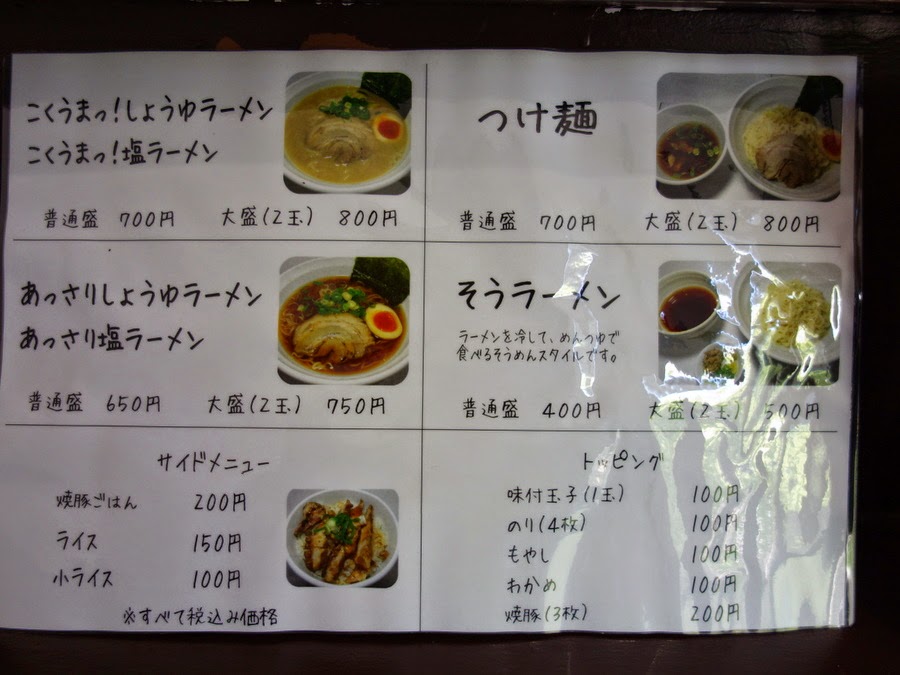 こくうまっ!しょうゆラーメン
こくうまっ!塩ラーメン
普通盛 700円 大盛(2玉) 800円
つけ麺
普通盛 700円 大盛(2玉) 800円
あっさりしょうゆラーメン
あっさり塩ラーメン
普通盛 650円 大盛(2玉) 750円
そうラーメン
ラーメンを冷して、めんつゆで
食べるそうめんスタイルです。
普通盛 400円 大盛(2玉) 500円
サイドメニュー
焼豚ごはん 200円
ライス 150円
小ライス 100円
※すべて税込み価格
トッピング
味付玉子(1玉) 100円
のり(4枚) 100円
もやし 100円
わかめ 100円
焼豚(3枚) 200円